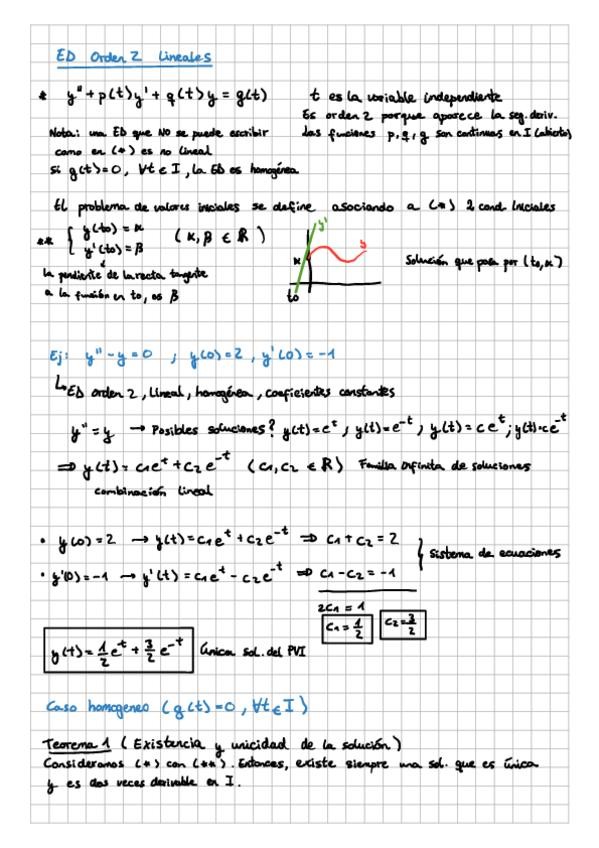 ED Orden 2 Lineales
* y'' + p(t)y' + q(t)y = g(t)
t es la variable independiente
Es orden 2 porque aparece la seg. deriv.
Nota: una ED que NO se puede escribir
las funciones p, q, g son continuas en I (abierto)
como en (*) es no lineal
Si g(t)=0, ∀t∈I, la ED es homogénea
El problema de valores iniciales se define asociando a (*) 2 cond. iniciales
** { y(to) = α
y'(to) = β
(α, β ∈ ℝ)
y'
y
α
to
Solución que pasa por (to, α)
la pendiente de la recta tangente
a la función en to, es β
Ej: y'' - y = 0 ; y(0) = 2, y'(0) = -1
↳ ED orden 2, lineal, homogénea, coeficientes constantes
y'' = y → Posibles soluciones? y(t) = e^t, y(t) = e^-t, y(t) = ce^t; y(t) = ce^-t
⇒ y(t) = c1e^t + c2e^-t (c1, c2 ∈ ℝ) Familia infinita de soluciones
combinación lineal
• y(0) = 2 → y(t) = c1e^t + c2e^-t ⇒ c1 + c2 = 2
• y'(0) = -1 → y'(t) = c1e^t - c2e^-t ⇒ c1 - c2 = -1
} sistema de ecuaciones
2c1 = 1
c1 = 1/2 c2 = 3/2
y(t) = 1/2 e^t + 3/2 e^-t única sol. del PVI
Caso homogeneo (g(t) = 0, ∀t∈I)
Teorema 1 (Existencia y unicidad de la solución)
Consideramos (*) con (**). Entonces, existe siempre una sol. que es única
y es dos veces derivable en I.